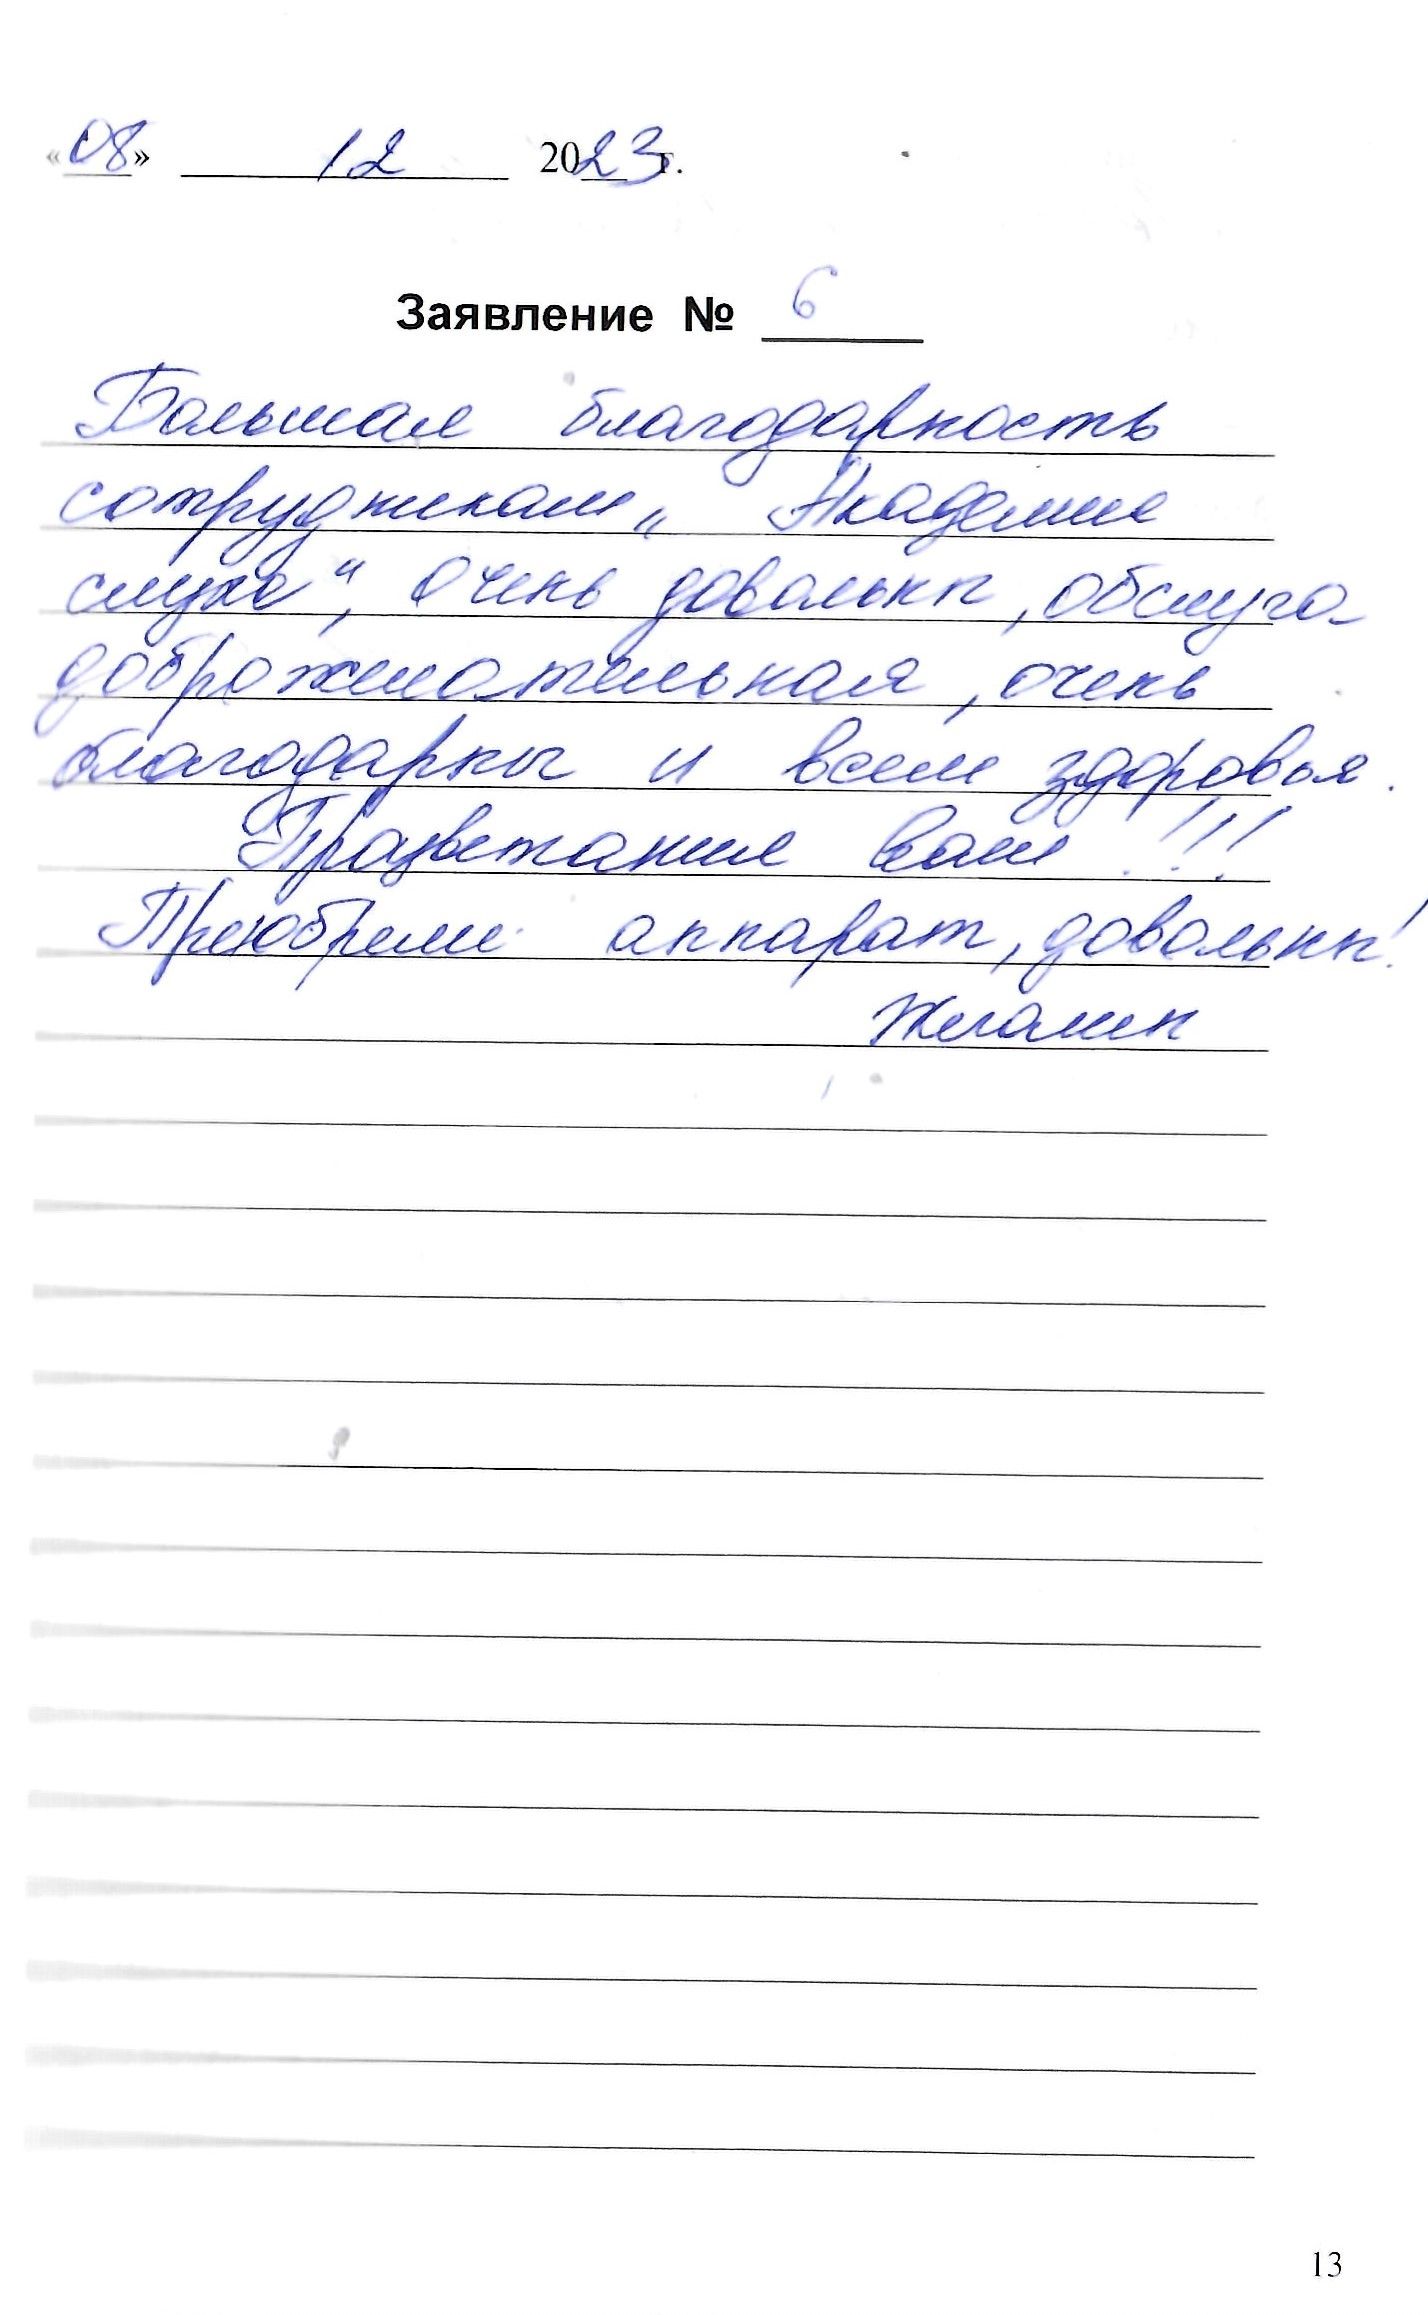 «08» 12 2023 г.
Заявление № 6
Большая благодарность
сотрудникам „ Академии
слуха“, очень довольны, обслуга
доброжелательная, очень
благодарны и всем здоровья.
Процветания Вам !!!
Приобрели аппарат, довольны!
13